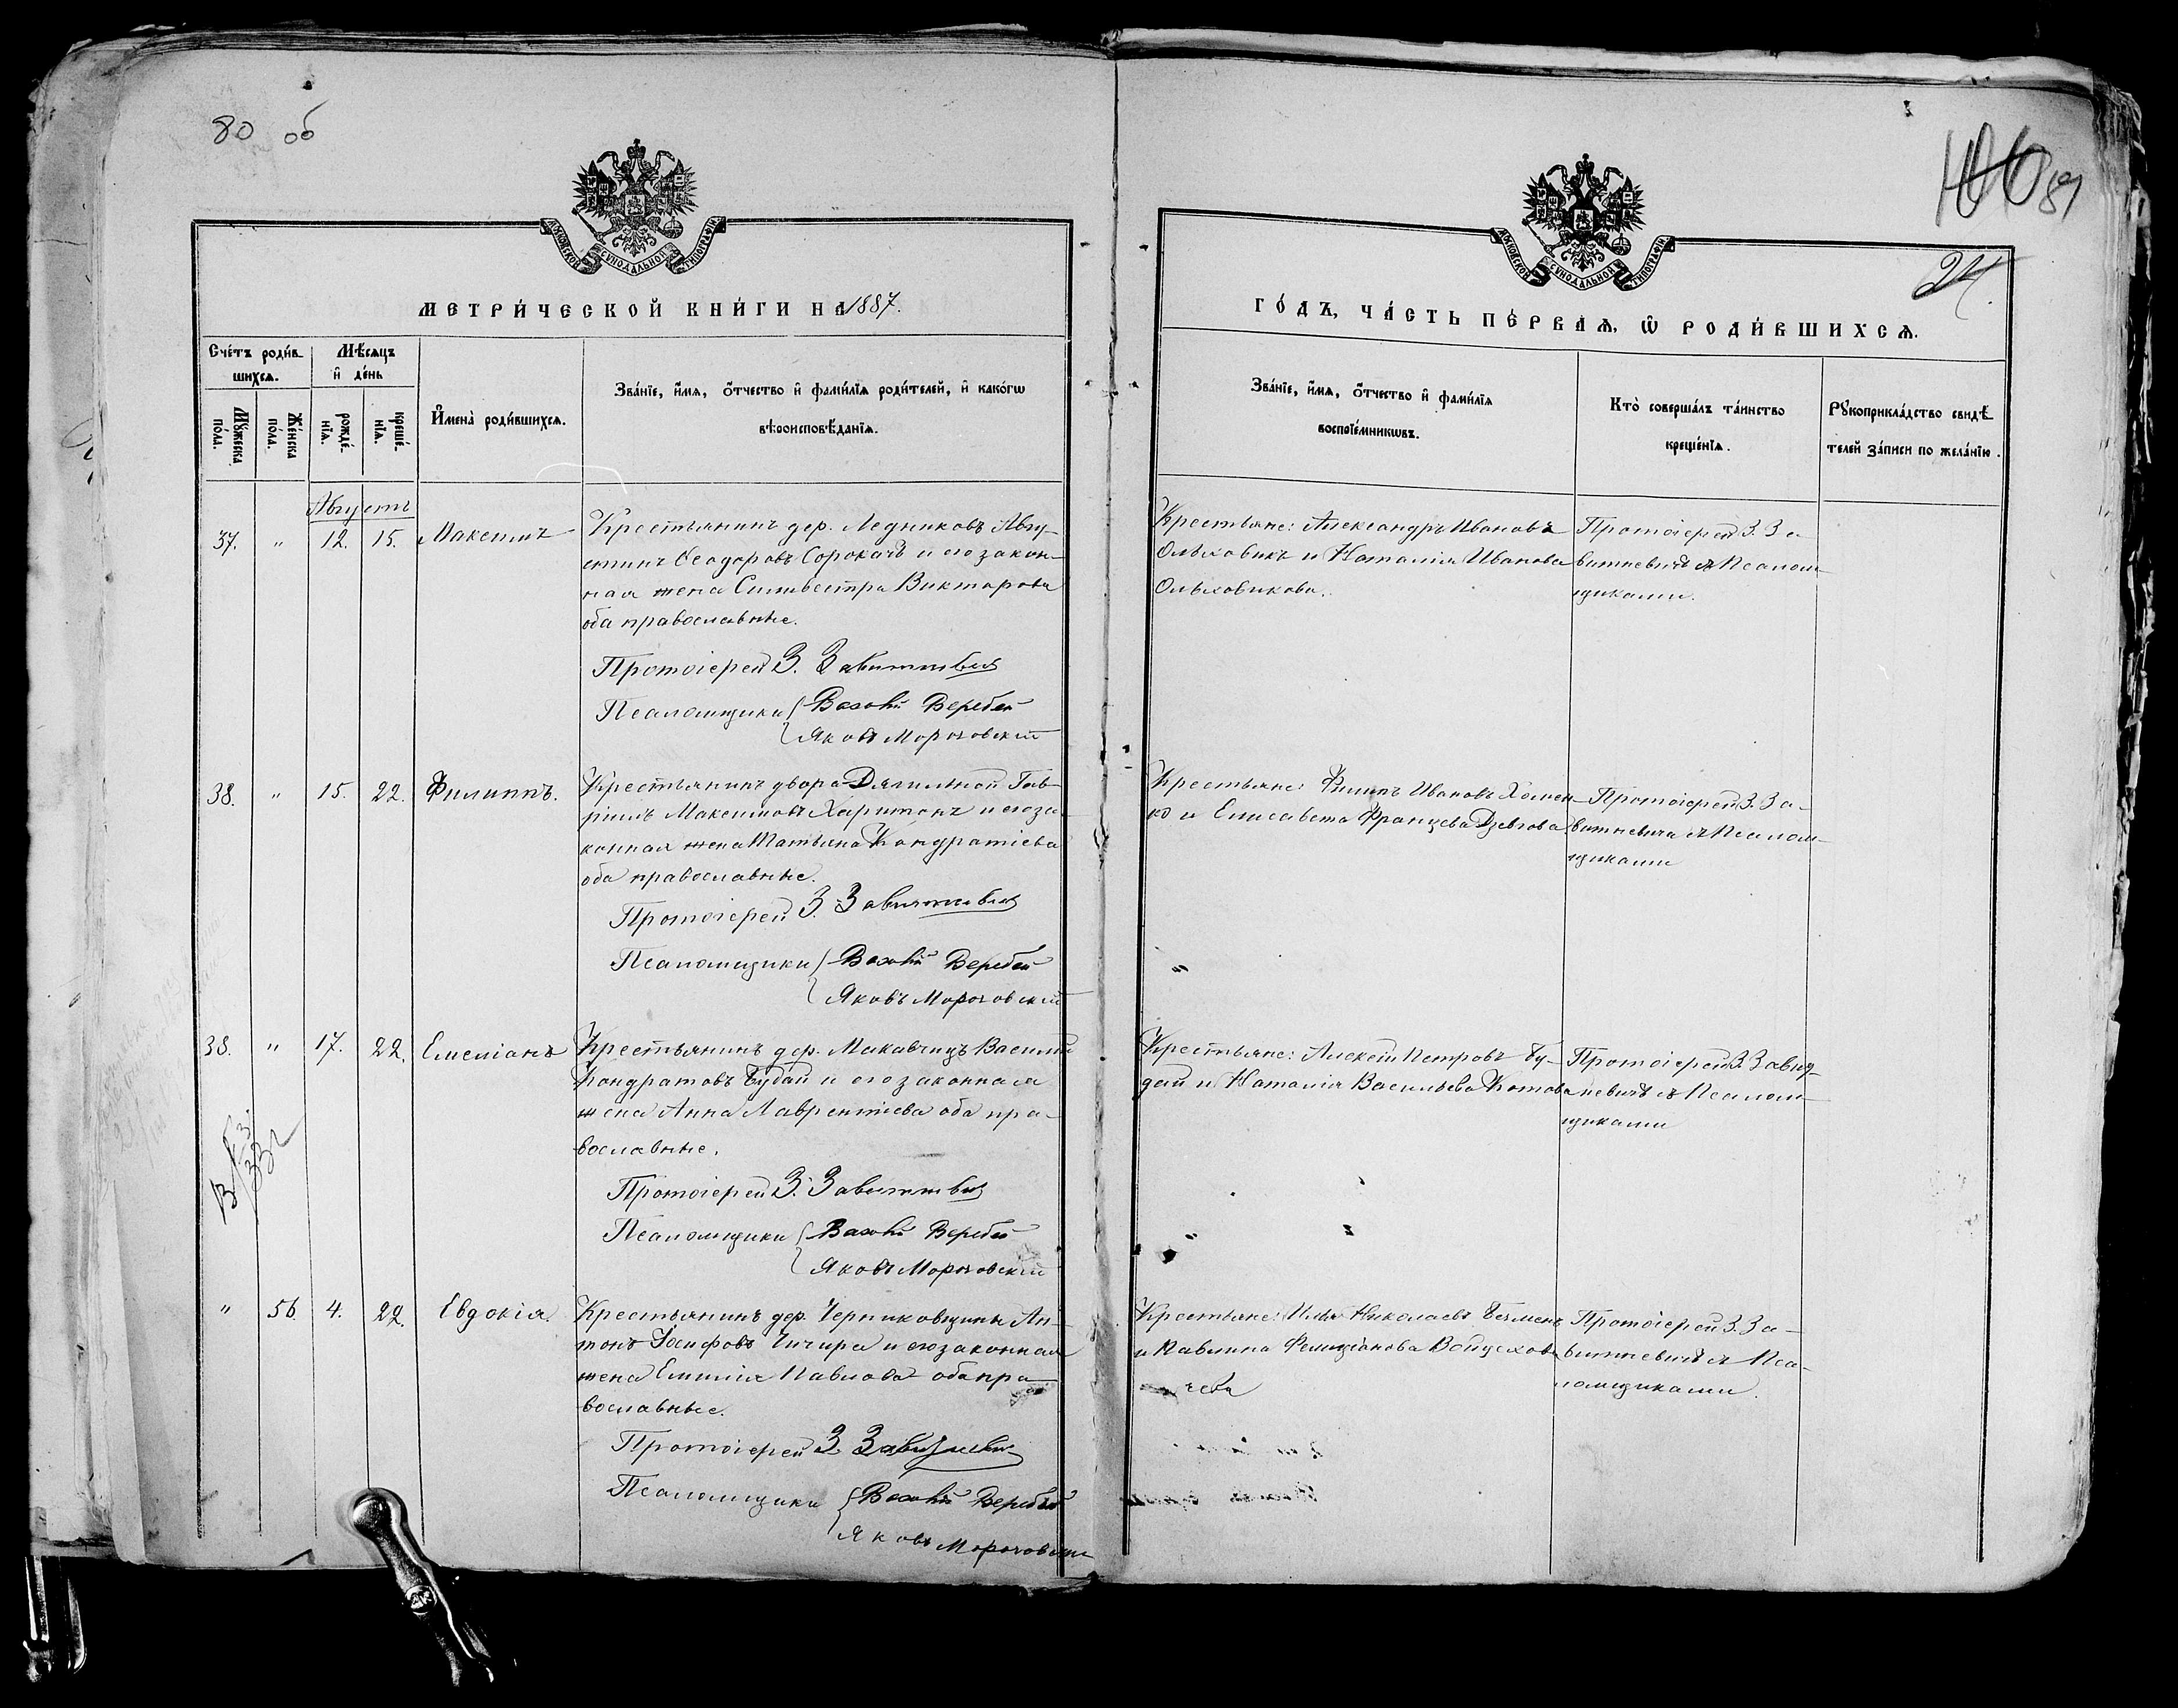 80 об
МОСКОВСКОЙ СУНОДАЛЬНОЙ ТИПОГРАФІИ
МЕТРИ́ЧЕСКОЙ КНИ́ГИ НА 1887.
Сче́тъ роди́в
шихсѧ.
Мѣ́сѧцъ
и҆ де́нь
Мꙋ́жеска
по́ла.
Же́нска
по́ла.
рожде́-
нїѧ.
креще́-
нїѧ.
И҆мена̀ роди́вшихсѧ.
Зва́нїе, и҆́мѧ, ѻ҆́тчество и҆ фами́лїѧ роди́телей, и҆ како́гѡ
вѣроисповѣ́данїѧ.
Августъ
37. " 12. 15. Максимъ
Крестьянинъ дер. Ледниковъ Авгу-
стинъ Ѳеодоровъ Сорокачъ и его закон-
ная жена Сильвестра Викторова
оба православные.
Протоіерей З. Завитневич
Псаломщики Василій Веребей
ЯковъМорозовскій
38. " 15. 22. Филиппъ.
Крестьянинъ двора Дягильной Гав-
ріилъ Максимовъ Харитонъ и его за-
конная жена Татьяна Кондратіева
оба православные.
Протоіерей З. Завитневич
Псаломщики Василій Веребей
Яковъ Морозовскій
38. " 17. 22. Емеліанъ
Крестьянинъ дер. Макавчицъ Василій
Кондратовъ Будай и его законная
жена Анна Лаврентіева оба пра-
вославные.
Протоіерей З. Завитневич
Псаломщики Василій Веребей
Яковъ Морозовскій
" 56. 4. 22. Евдокія.
Крестьянинъ дер. Черниковщины Ан-
тонъ Іосифовъ Чичира и его законная
жена Емилія Павлова оба пра-
вославные.
Протоіерей З. Завитневич
Псаломщики Василій Веребей
Яковъ Морозовскій
81
24.
МОСКОВСКОЙ СУНОДАЛЬНОЙ ТИПОГРАФІИ
ГО́ДЪ, ЧА́СТЬ ПЕ́РВАѦ, Ѡ҆ РОДИ́ВШИХСѦ.
Зва́нїе, и҆́мѧ, ѻ҆́тчество и҆ фами́лїѧ
воспрїе́мникѡвъ.
Кто̀ соверша́лъ та́инство
креще́нїѧ.
Рꙋкоприкла́дство свидѣ́
телей за́писи по жела́нїю.
Крестьяне: Александръ Ивановъ
Ольховикъ и Наталія Иванова
Ольховикова.
Протоіерей З. За-
витневичъ съ Псалом-
щиками.
Крестьяне: Филипъ Ивановъ Хомен-
ко и Елисавета Францева Дзевгова
Протоіерей З. За-
витневичъ съ Псалом-
щиками
Крестьяне: Алексѣй Петровъ Бу-
дай и Наталія Васильева Котова
Протоіерей З. Завит-
невичъ съ Псалом-
щиками
Крестьяне: Илья Николаевъ Безменъ
и Павлина Фелиціанова Войцехов-
Протоіерей З. За-
витневичъ съ Пса-
ломщиками.